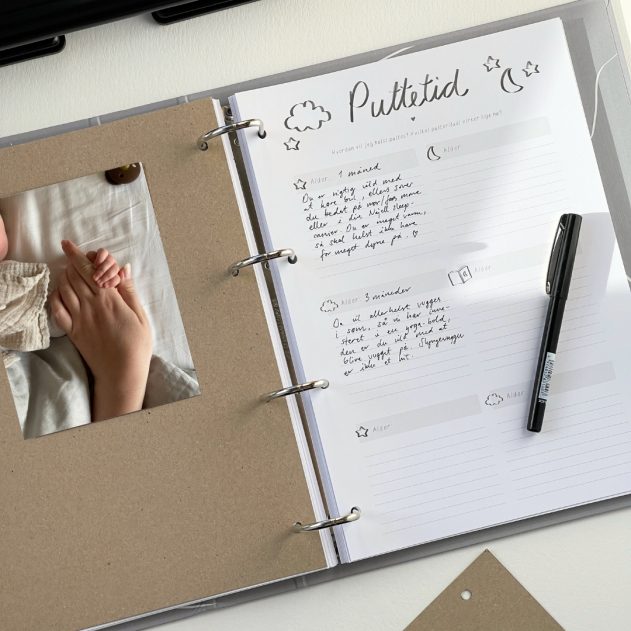 Puttetid
Hvordan vil jeg helst puttes? Hvilket putteritual virker lige nu?
Alder 1 måned
Du er rigtig vild med
at køre bil, ellers sover
du bedst på mor/fars mave
eller i din Najell sleep-
carrier. Du er meget varm,
så skal helst ikke have
for meget dyne på. ♡
Alder
Alder 3 måneder
Du vil allerhelst vugges
i søvn, så vi har inve-
steret i en yoga-bold,
den er du vild med at
blive vugget på. Slyngevugge
er ikke et hit.
Alder
Alder
Alder